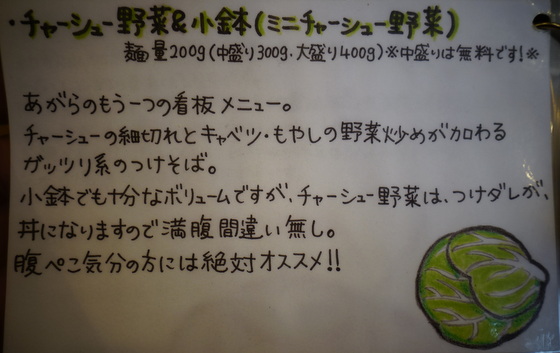 ・チャーシュー野菜&小鉢(ミニチャーシュー野菜)
麺量200g(中盛り300g・大盛り400g)※中盛りは無料です!※
あがらのもう一つの看板メニュー。
チャーシューの細切れとキャベツ・もやしの野菜炒めが加わる
ガッツリ系のつけそば。
小鉢でも十分なボリュームですが、チャーシュー野菜は、つけダレが、
丼になりますので満腹間違い無し。
腹ぺこ気分の方には絶対オススメ!!